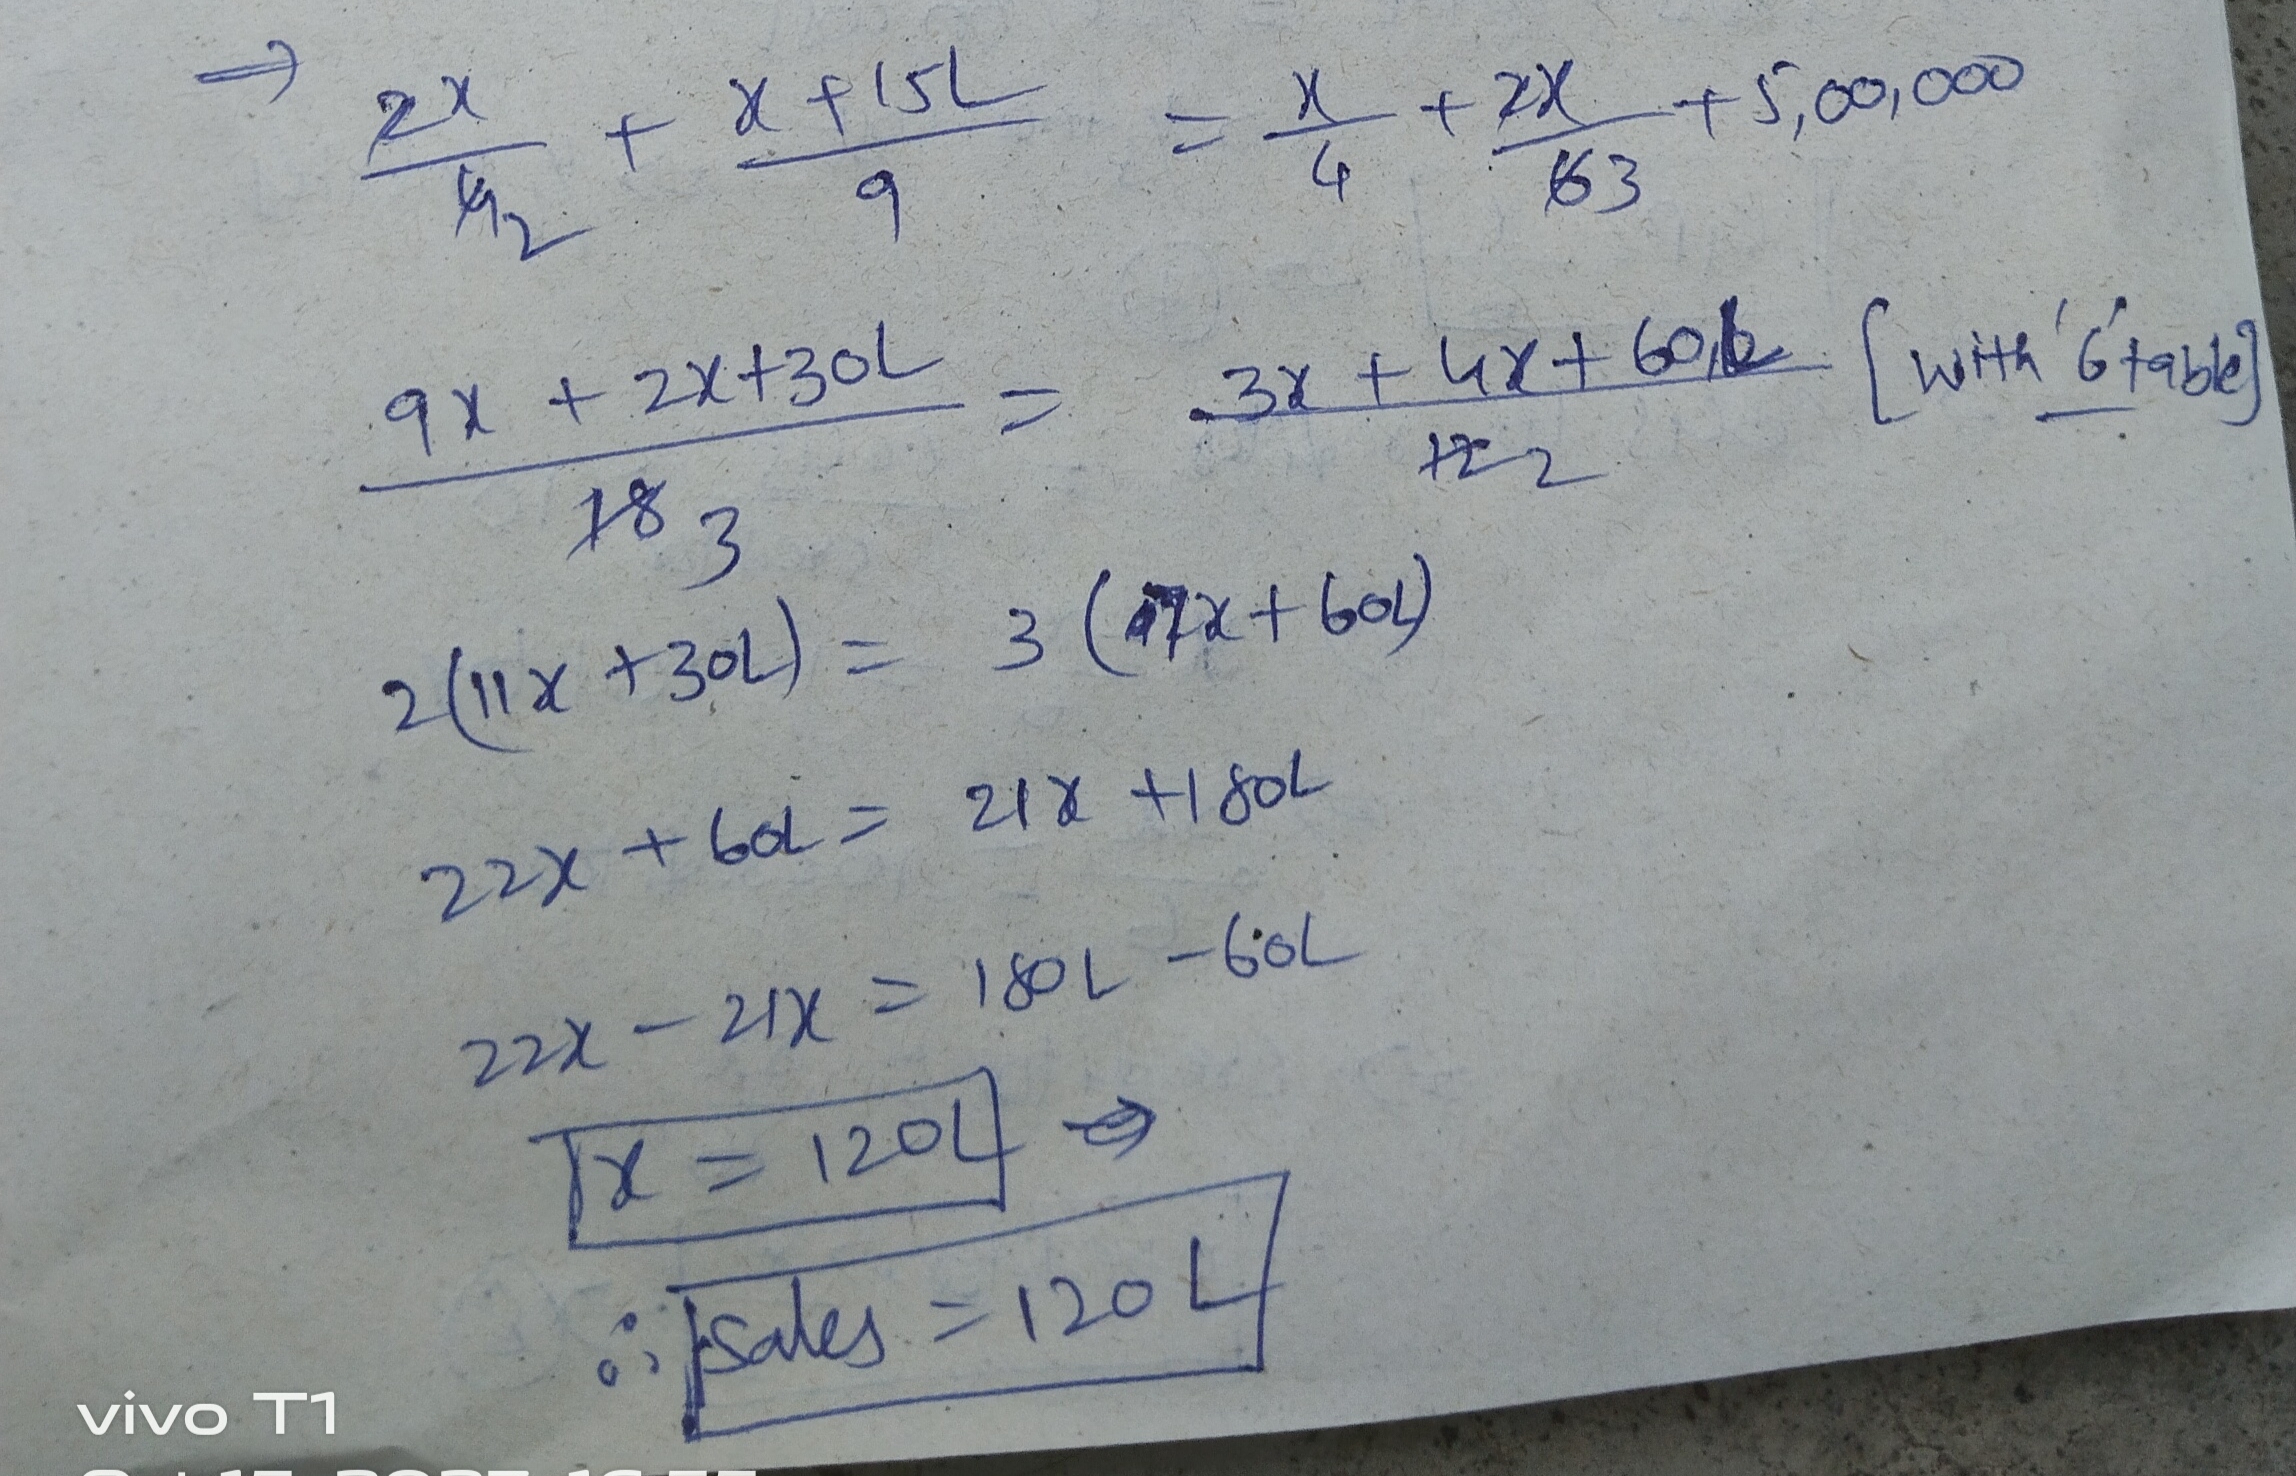 ⇒ 2x/4 2 + x + 15L/9 = x/4 + 2x/6 3 + 5,00,000
9x + 2x + 30L/18 3 = 3x + 4x + 60L/12 2 [with '6' table]
2(11x + 30L) = 3(7x + 60L)
22x + 60L = 21x + 180L
22x - 21x = 180L - 60L
x = 120L ⇒
∴ sales = 120L
vivo T1